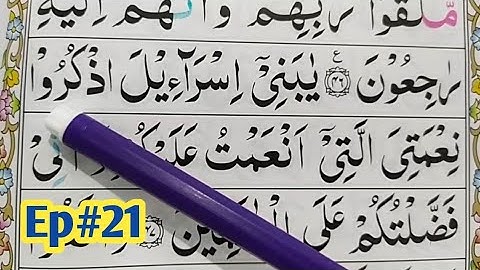 مُّلٰقُوْا رَبِّهِمْ وَاَنَّهُمْ اِلَيْهِ
رٰجِعُوْنَ ۝٤٦ ع يٰبَنِىْٓ اِسْرَآءِيْلَ اذْكُرُوْا
نِعْمَتِىَ الَّتِىْٓ اَنْعَمْتُ
فَضَّلْتُكُمْ عَلَى
Ep#21